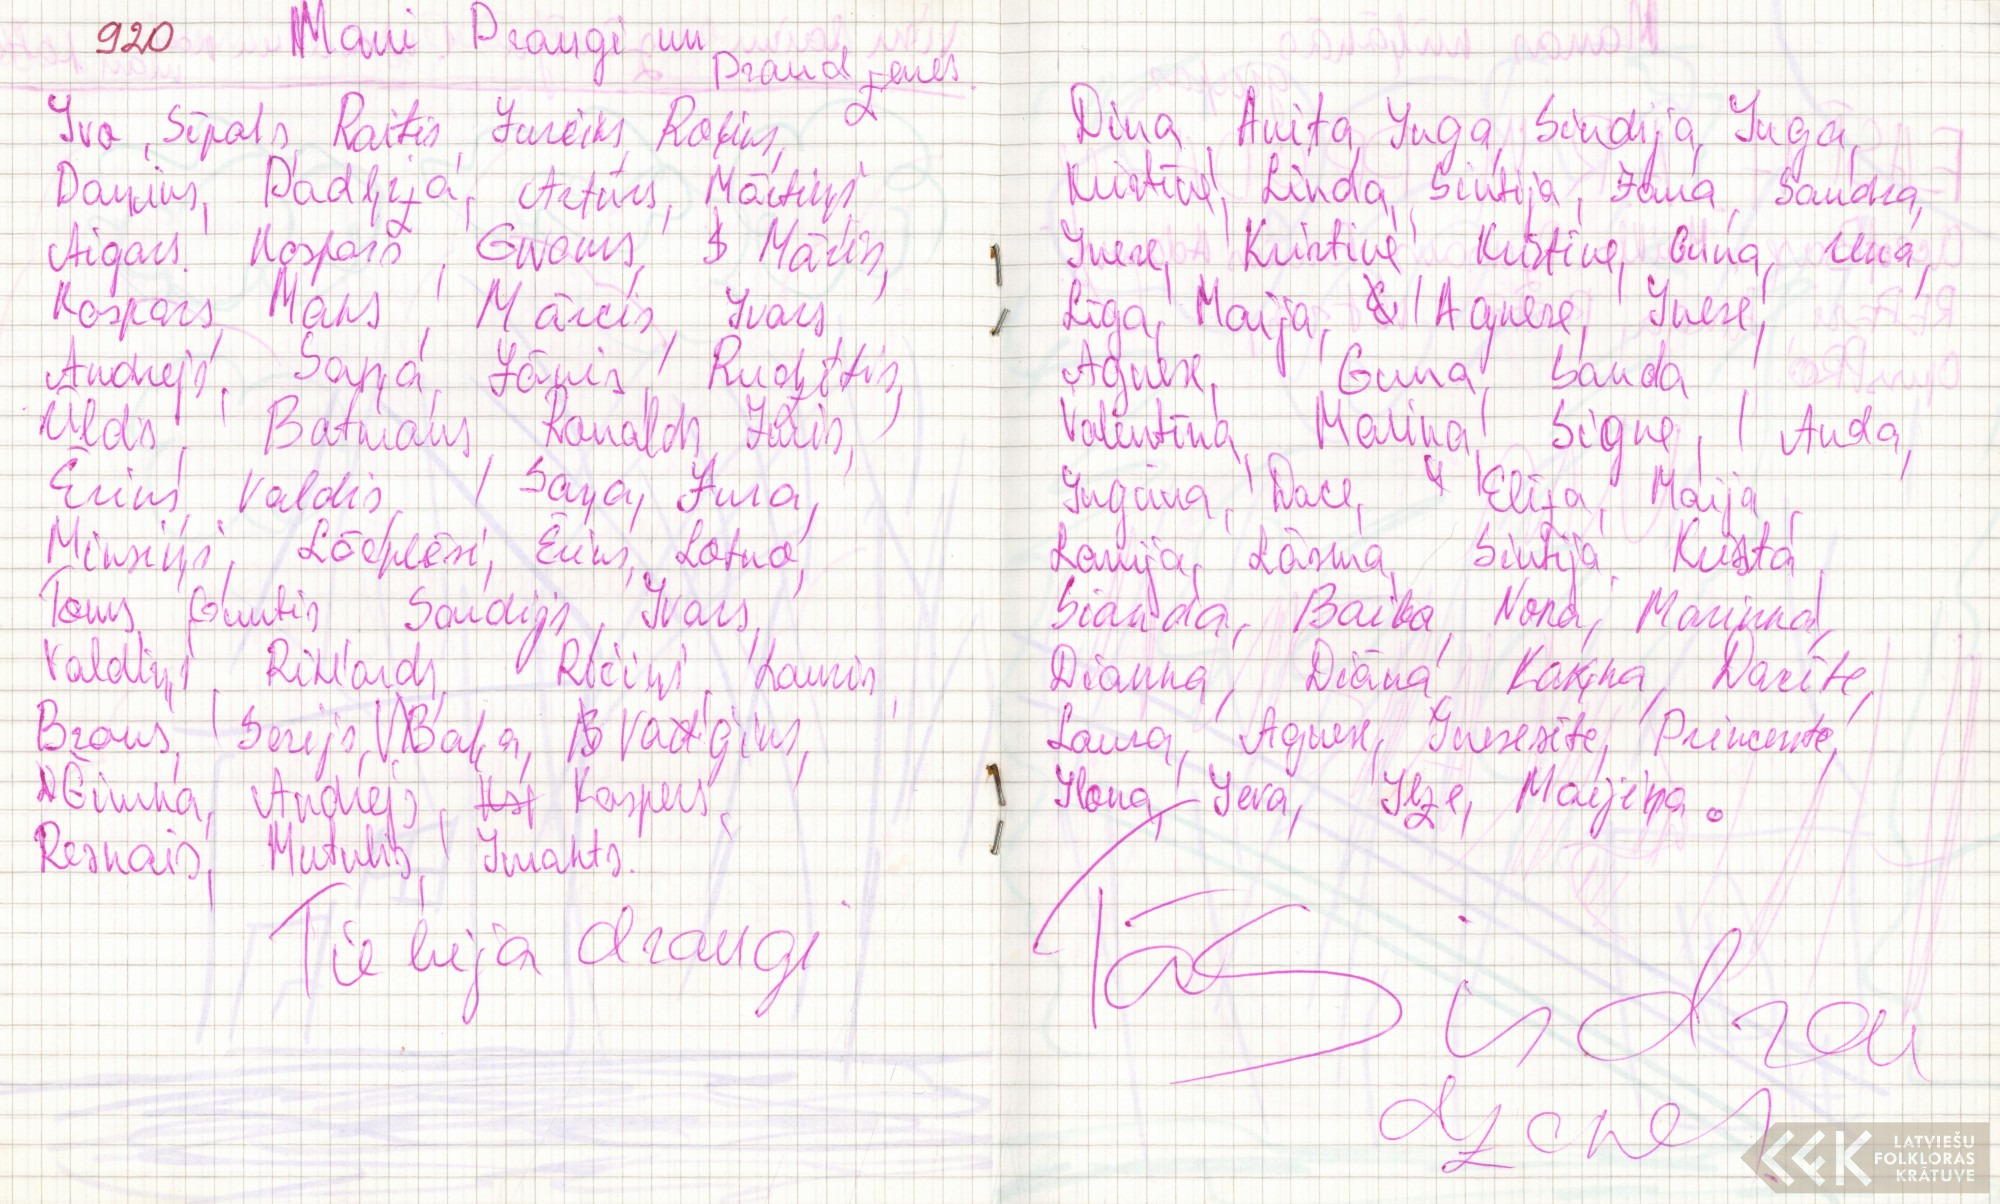 920
Mani Draugi un
Draudzenes
Ivo, Sīpols, Raitis, Jurciks, Rofins,
Danins, Dadzja, Artūrs, Mārtiņš
Aigars. Kaspars, Gvoms, Māris,
Kaspars, Maks, Mārcis, Ivars
Andrejs, Saņa, Jānis, Rudzītis,
Uldis, Batmans, Ronalds, Juris,
Ēriks, Valdis, Saņa, Jura,
Minsiņš, Lāčplēsi, Ēriks, Latno,
Toms, Guntis Sandijs, Ivars,
Valdiņš, Rihards, Rēciņš, Lauris,
Brans, Serijs, Baļa, Vaigins,
Ēinka, Andrejs, Kaspers,
Resnais, Mutulis, Imants.
Tie bija draugi
Dina, Anita, Inga, Sindija, Inga,
Kristīne, Linda, Sintija, Jana, Sandra,
Inese, Kristīne Kristīne, Guna, Una,
Līga, Maija, Agnese, Inese,
Agnese, Guna, Sanda
Valentīna, Malina, Signe, Anda,
Inguna, Dace, Elīza, Maija,
Lanija, Lāsma, Sintija, Krista,
Sianda, Baiba, Nora, Marinna,
Dianna, Diāna, Karina, Dacīte,
Laura, Agnese, Inesesīte, Princesīte,
Ilona, Ieva, Ilze, Maijiņa.
Tās ir drau
dzenes
LATVIEŠU
FOLKLORAS
KRĀTUVE